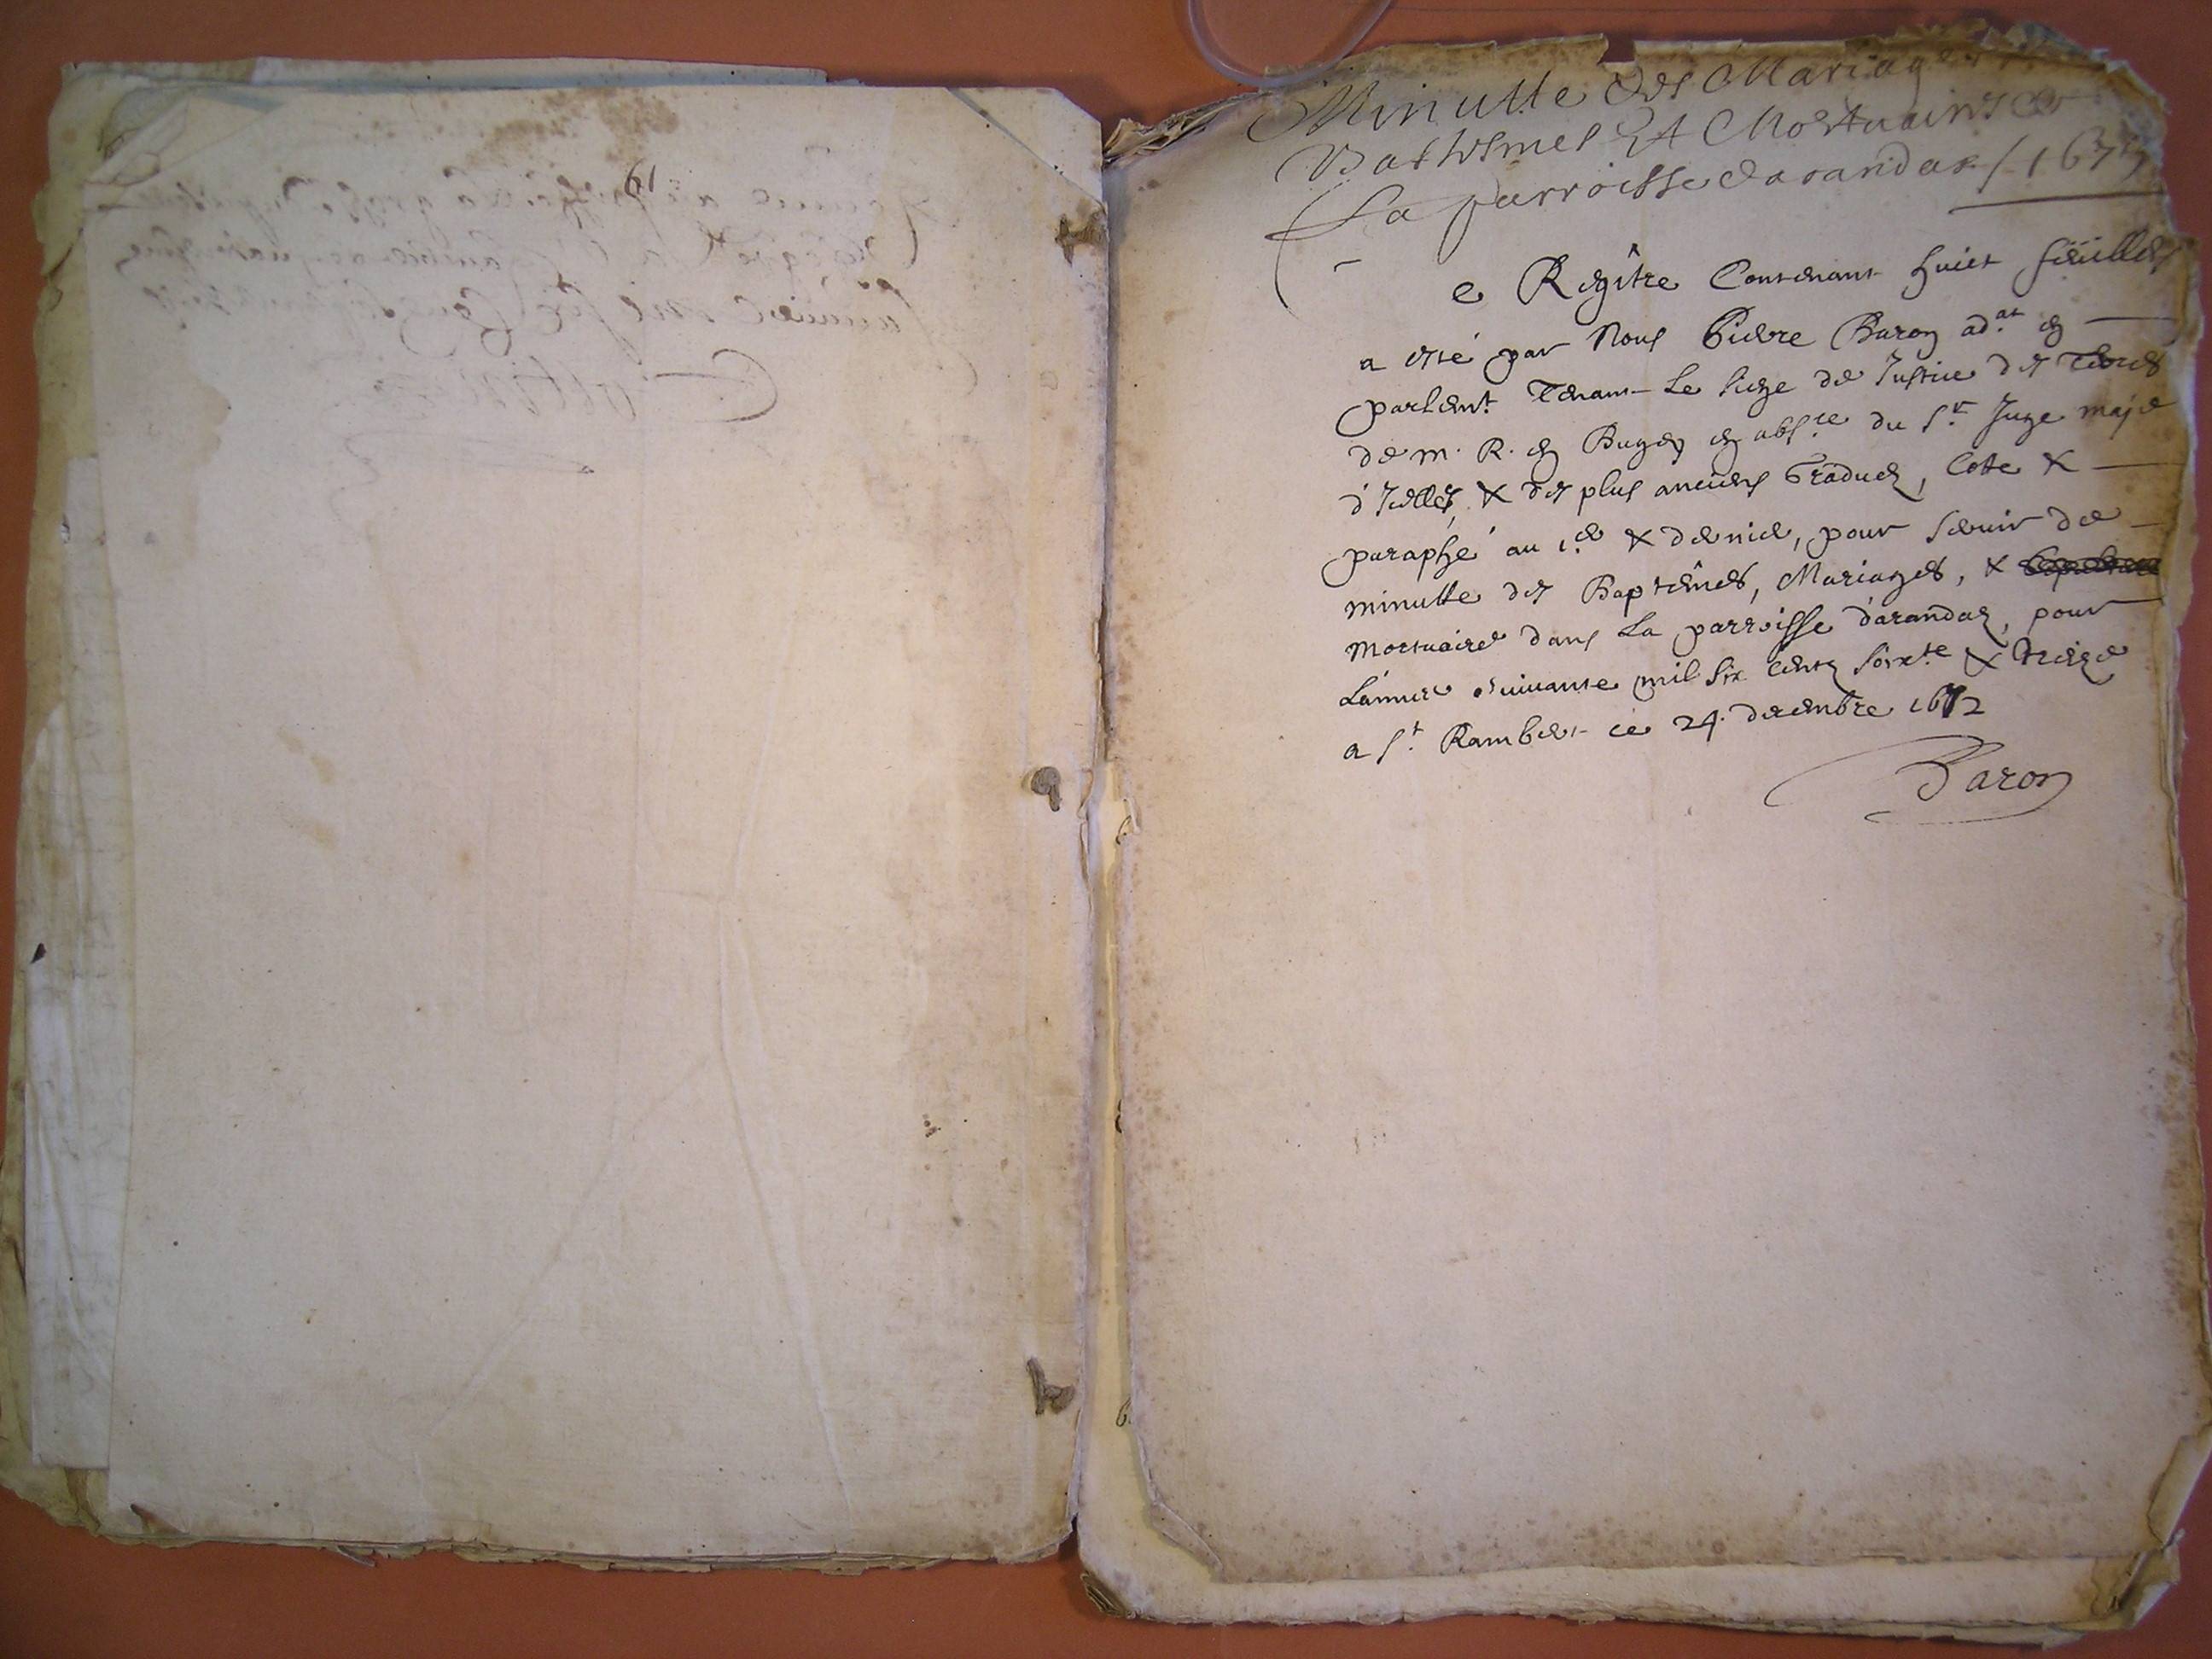 Minutte des Mariages
Batistmes Et Mortuaires de
La parroisse darandas / 1673
Ce Regître Contenant huict feüilles
a esté par Nous Pierre Baron ad.at en
parlem.t Tenant Le siege de Justice des Terres
de m. R. en Bugey en abs.ce du S.r Juge maje
d'Icelles, & des plus anciens Graduez, Cotté &
paraphé au 1.er & dernier, pour seruir de
minutte des Baptêmes, Mariages, &
Mortuaires dans La parroisse d'arandaz, pour
L'année suiuante mil six centz soix.te & treize
a S.t Rambert ce 24. decembre 1672
Baron